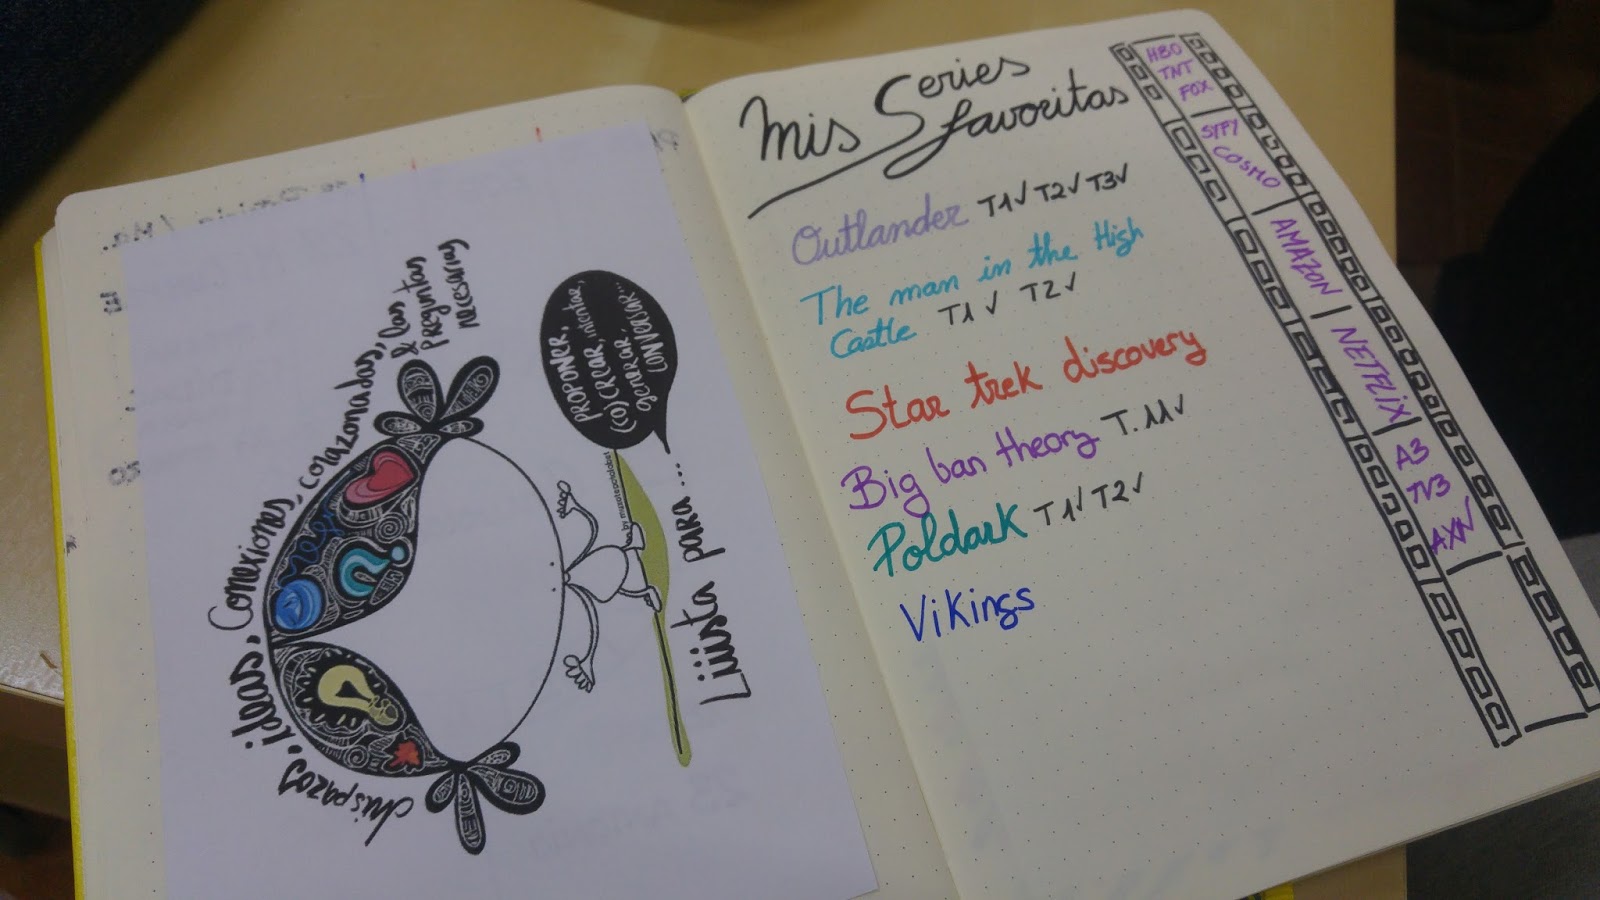 chispazos, ideas, conexiones, corazonadas, las
& preguntas
necesarias
PROPONER,
(CO)CREAR, intentar,
generar,
CONVERSAR...
Liiiista para...
Mis Series
favoritas
Outlander T1✓ T2✓ T3✓
The man in the High
Castle T1 ✓ T2 ✓
Star trek discovery
Big ban theory T.11✓
Poldark T1✓ T2✓
Vikings
HBO
TNT
FOX
SYFY
COSMO
AMAZON
NETFLIX
A3
TV3
AXN